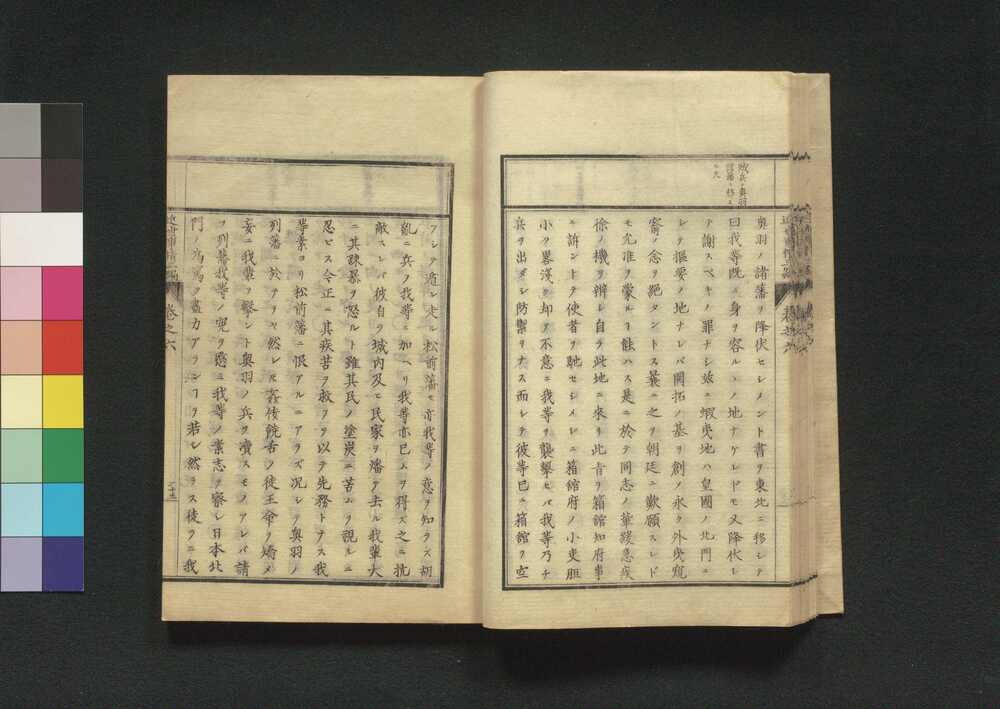 賊兵奥羽
諸藩ニ移ス
ノ文
奥羽ノ諸藩ヲ降伏セシメント書ヲ東北ニ移シテ
曰我等既ニ身ヲ容ルヽノ地ナケレドモ又降伏シ
テ謝スベキノ罪ナシ茲ニ蝦夷地ハ皇國ノ北門ニ
シテ樞要ノ地ナレバ開拓ノ基ヲ創メ永ク外夷窺
窬ノ念ヲ絶タントス曩ニ之ヲ朝廷ニ歎願スレド
モ允准ヲ蒙ル丨能ハス是ニ於テ同志ノ輩緩急疾
徐ノ機ヲ辨シ自ラ此地ニ來リ此旨ヲ箱館知府事
ニ訴ントテ使者ヲ馳セシメシニ箱館府ノ小吏胆
小ク畧淺ク却テ不意ニ我等ヲ襲撃セバ我等乃チ
兵ヲ出タシ防禦ヲナス而シテ彼等已ニ箱館ヲ空
フシテ遁レ走ル松前藩モ亦我等ノ意ヲ知ラズ胡
亂ニ兵ヲ我等ニ加ヘリ我等亦已ムヲ得ズ之ニ抗
敵スレバ彼自ラ城内及ヒ民家ヲ燔テ去ル我輩大
ニ其疎暴ヲ怒ルト雖其民ノ塗炭ニ苦ムヲ視ルニ
忍ビス今正ニ其疾苦ヲ救フヲ以テ先務トナス我
等素ヨリ松前藩ニ恨アルニアラズ况シテ奥羽ノ
列藩ニ於テヲヤ然レ𪜈姦佞饒舌ノ徒王命ヲ矯メ
妄ニ我輩ヲ撃ント奥羽ノ兵ヲ瀆スモノアレバ請
フ列藩我等ノ寃ヲ愍ミ我等ノ素志ヲ察シ日本北
門ノ爲馬ヲ盡力アランヿヲ若シ然ラス徒ラニ我
卷之六